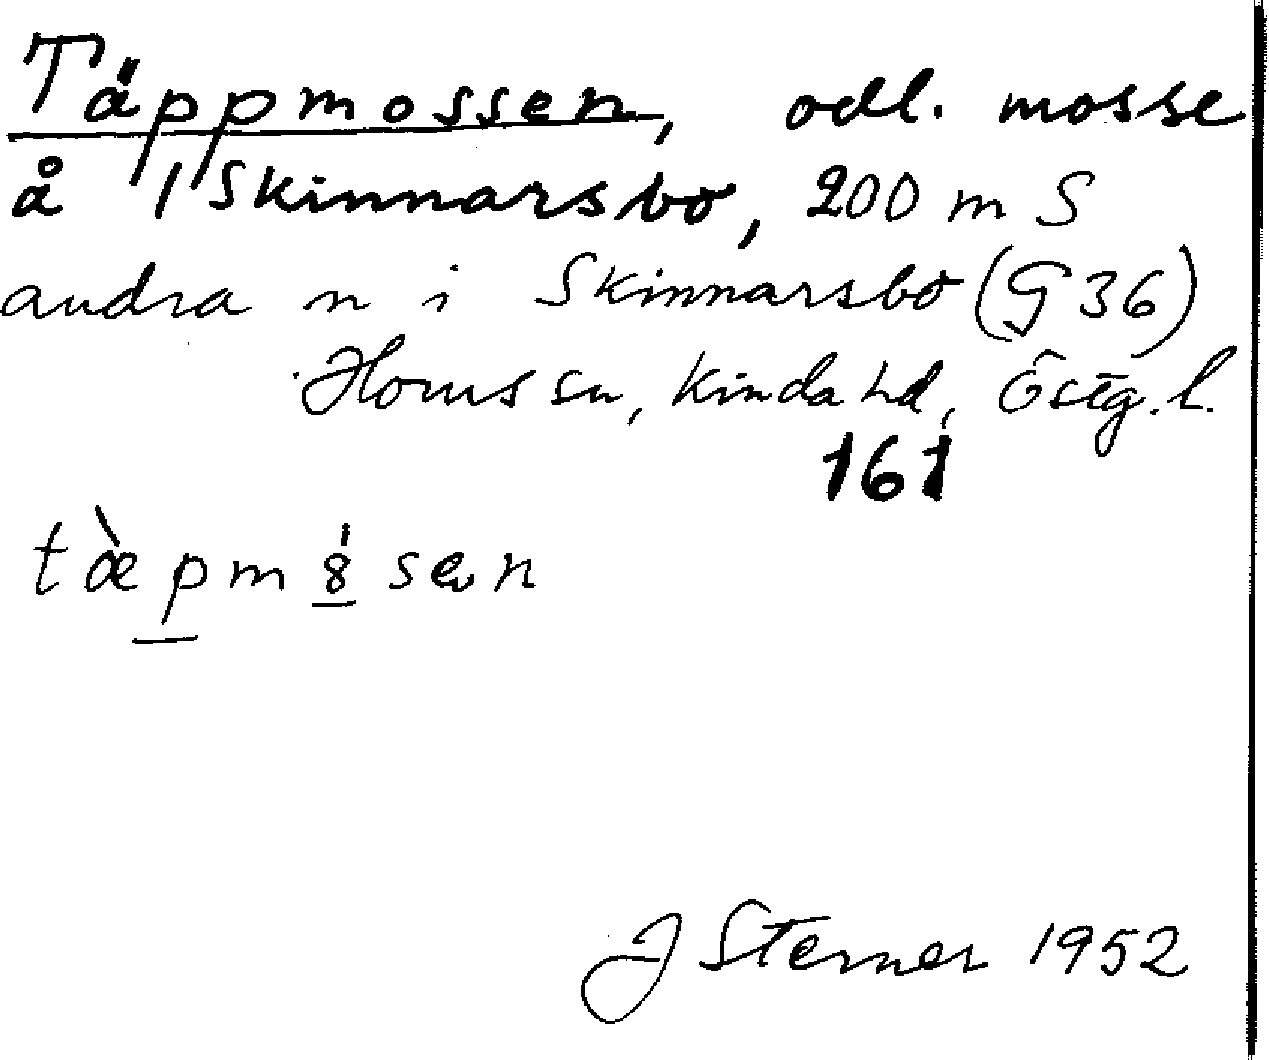 Täppmossen, odl. mosse
å 1 Skinnarsbo, 200 m S
andra n i Skinnarsbo (G 36)
Horns sn, Kinda hd, Östg. l.
161
tæ̀pm8̍sen
J Sterner 1952